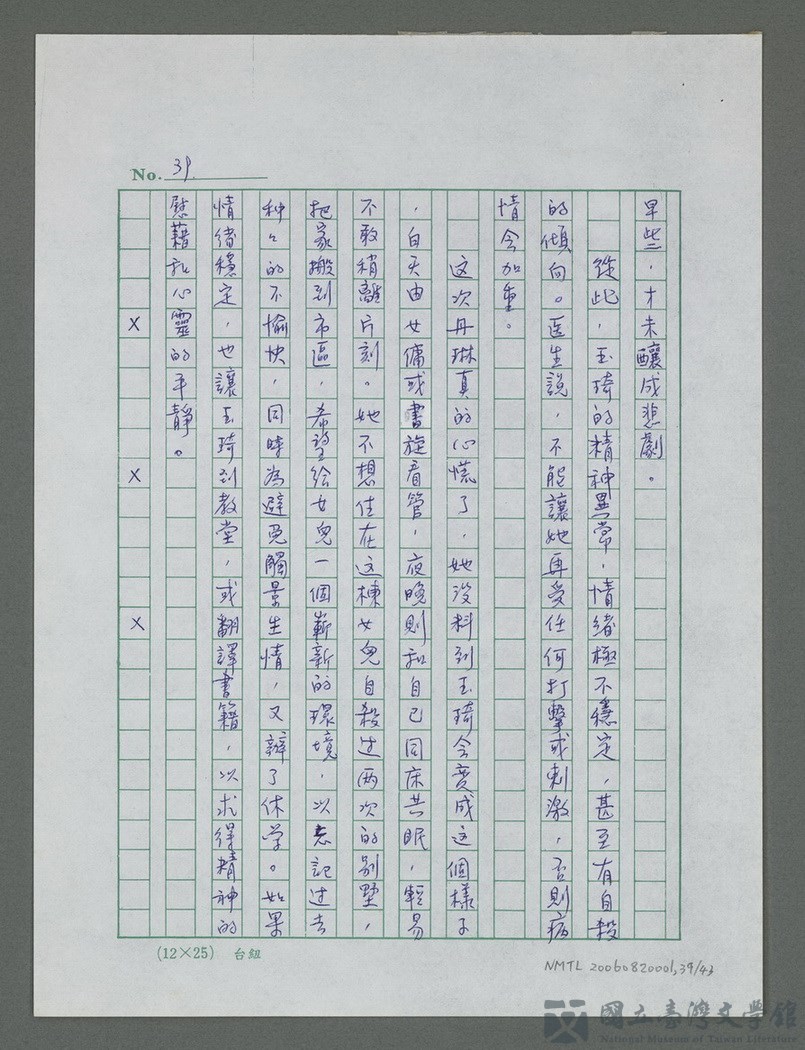 No. 39
早些，才未釀成悲劇。
從此，玉琦的精神異常，情緒極不穩定，甚至有自殺
的傾向。医生說，不能讓她再受任何打擊或刺激，否則病
情会加重。
这次丹琳真的心慌了，她没料到玉琦会变成这個樣子
，白天由女傭或書旋看管，夜晚則和自己同床共眠，輕易
不敢稍離片刻。她不想住在这棟女兒自殺过两次的别墅，
把家搬到市區，希望给女兒一個嶄新的環境，以忘記过去
种々的不愉快，同時為避免觸景生情，又辦了休学。如果
情绪穩定，也讓玉琦到教堂，或翻譯書籍，以求得精神的
慰藉和心靈的平静。
X X X
(12×25) 台紐
NMTL 20060820001,39/43
國立臺灣文學館
National Museum of Taiwan Literature